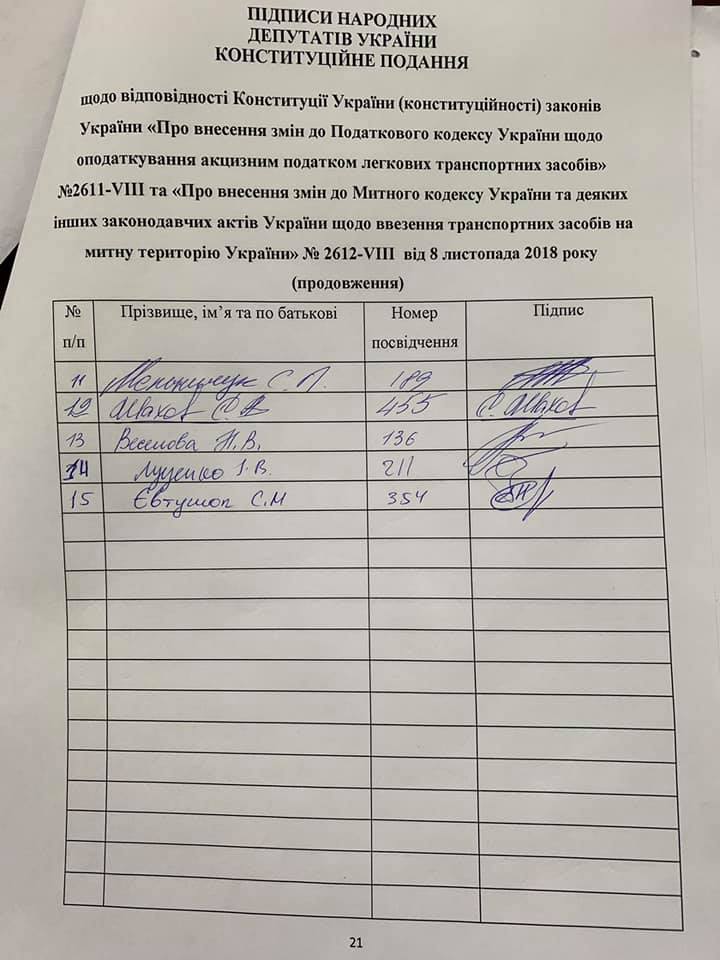 ПІДПИСИ НАРОДНИХ
ДЕПУТАТІВ УКРАЇНИ
КОНСТИТУЦІЙНЕ ПОДАННЯ
щодо відповідності Конституції України (конституційності) законів
України «Про внесення змін до Податкового кодексу України щодо
оподаткування акцизним податком легкових транспортних засобів»
№2611-VIII та «Про внесення змін до Митного кодексу України та деяких
інших законодавчих актів України щодо ввезення транспортних засобів на
митну територію України» № 2612-VIII від 8 листопада 2018 року
(продовження)
№ п/п Прізвище, ім’я та по батькові Номер посвідчення Підпис
11 С. І. 189
12 Шахов С. В 455 С. Шахов
13 Веселова Н.В. 136
14 Луценко І.В. 211
15 Євтушок С.М 354
21